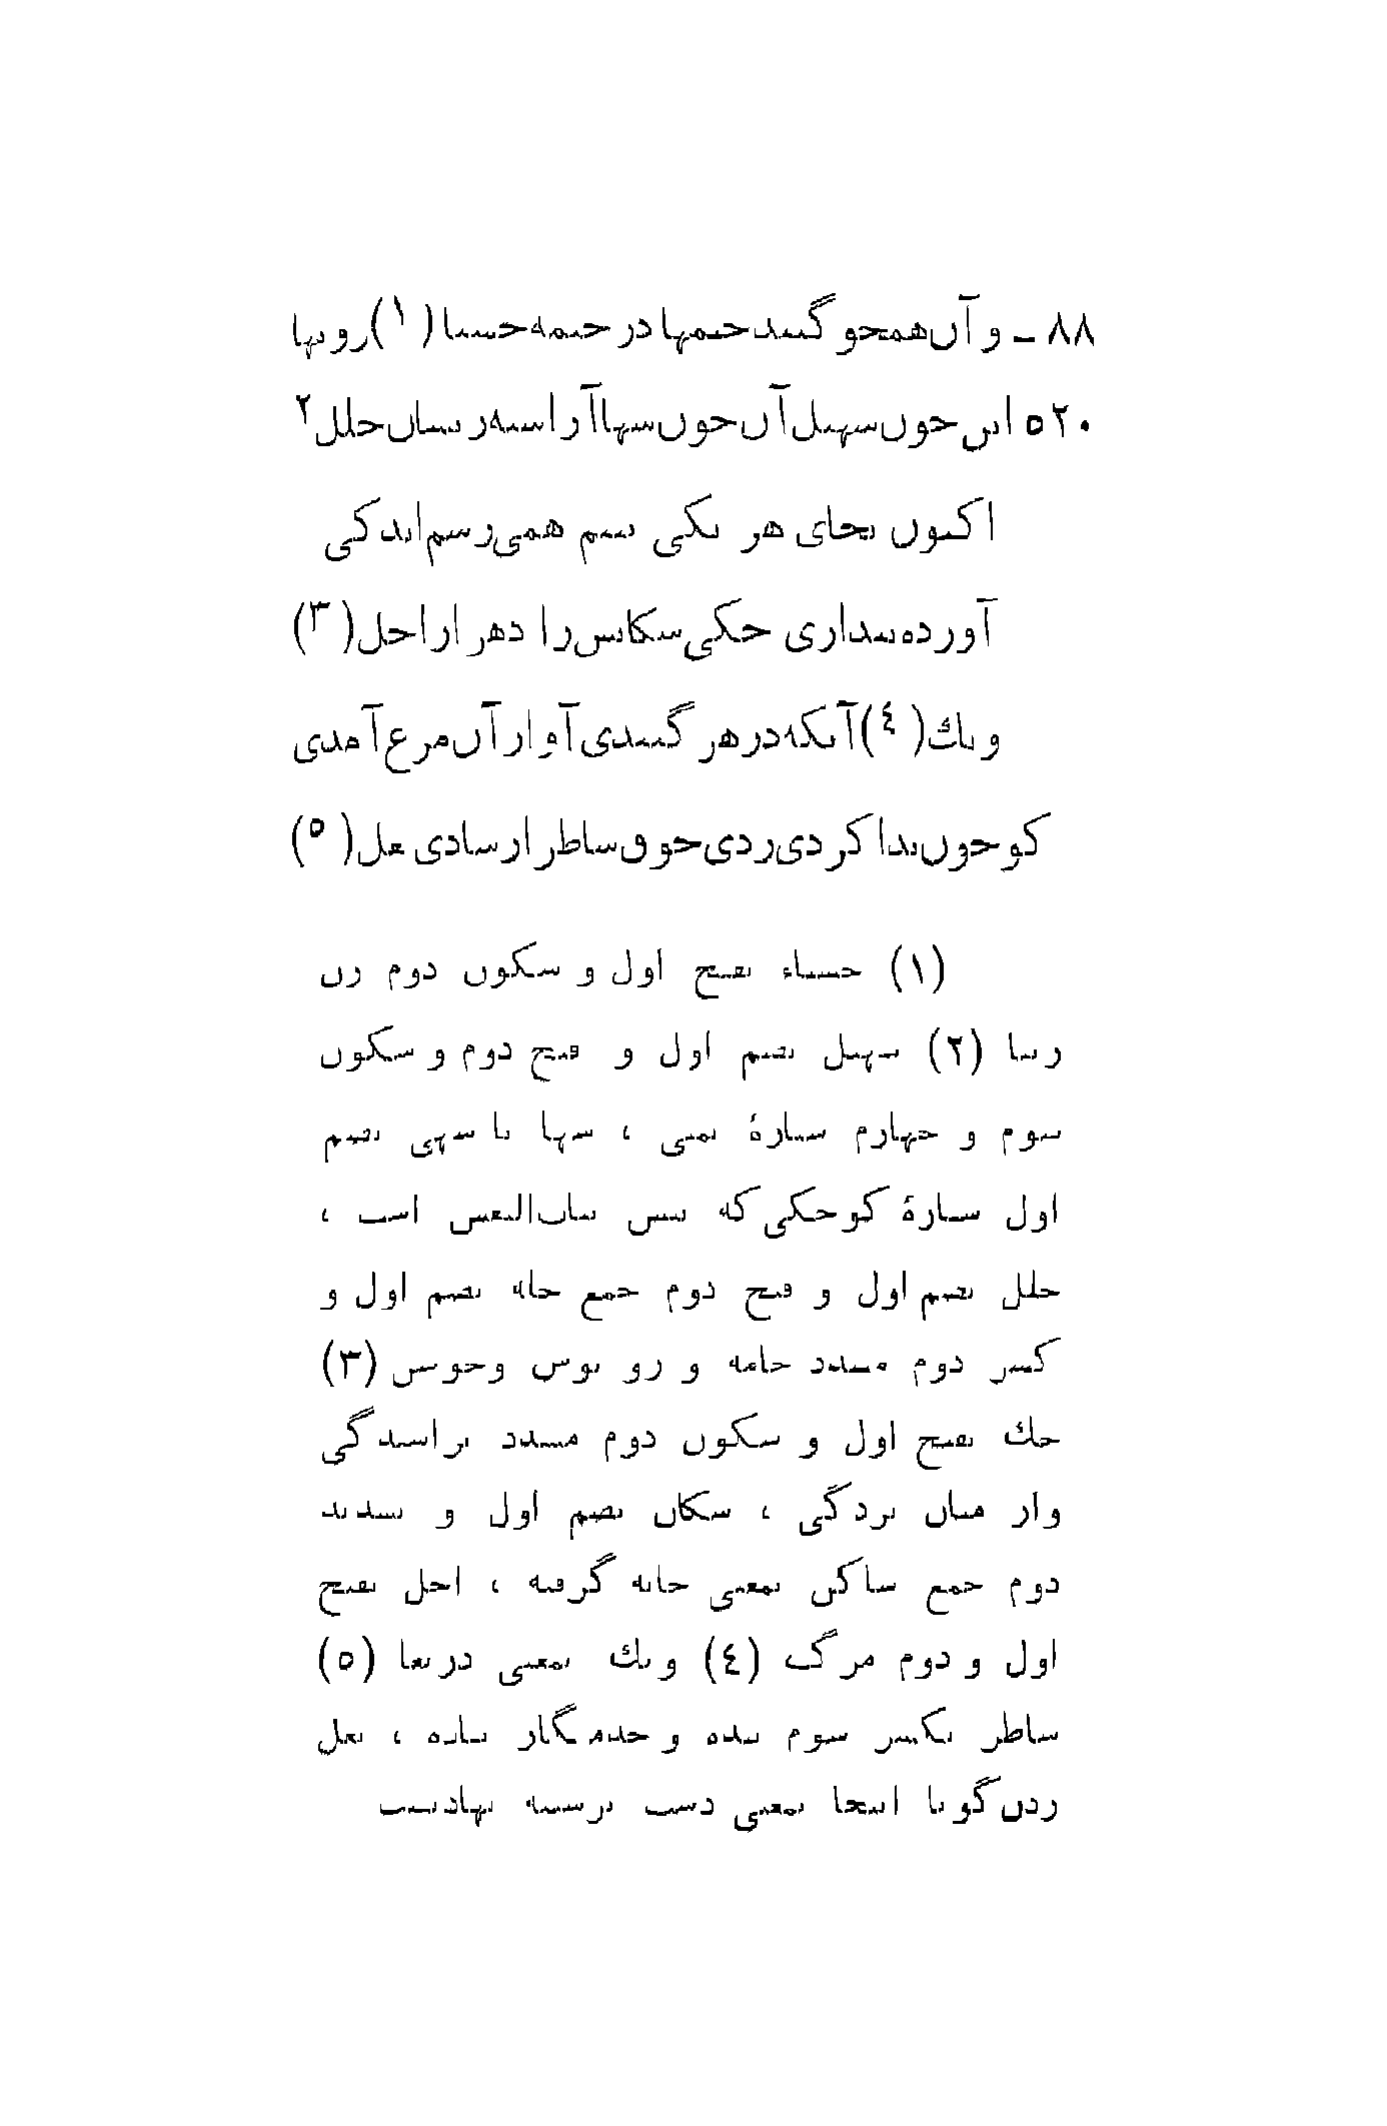 ۸۸ ـ و آن همچو گنبد خیمها در خیمه حسنا (۱) رویها
۵۲۰ این چون سهیل آن چون سها آراسته زینسان حلل ۲
اکنون بجای هر یکی بینم همی رسم اندکی
آورده پنداری حکی سکانش را دهر از اجل (۳)
ویك (٤) آنکه در هر گنبدی آواز آن مرغ آمدی
کو چون ندا کردی زدی چون شاطر از شادی بغل (۵)
(۱) حسناء بفتح اول و سکون دوم زن
زیبا (۲) سهیل بضم اول و فتح دوم و سکون
سوم و چهارم ستارهٔ یمنی ، سها یا سهی بضم
اول ستارهٔ کوچکی که پیش بنات‌النعش است ،
حلل بضم اول و فتح دوم جمع حله بضم اول و
کسر دوم مشدد جامه و رو پوش وجوشن (۳)
حك بفتح اول و سکون دوم مشدد تراشیدگی
واز میان بردگی ، سکان بضم اول و تشدید
دوم جمع ساکن بمعنی خانه گرفته ، اجل بفتح
اول و دوم مرگ (٤) ویك بمعنی دریغا (۵)
شاطر بکسر سوم بنده و خدمتگار ، بغل
زدن گویا اینجا بمعنی دست بر سینه نهادنست